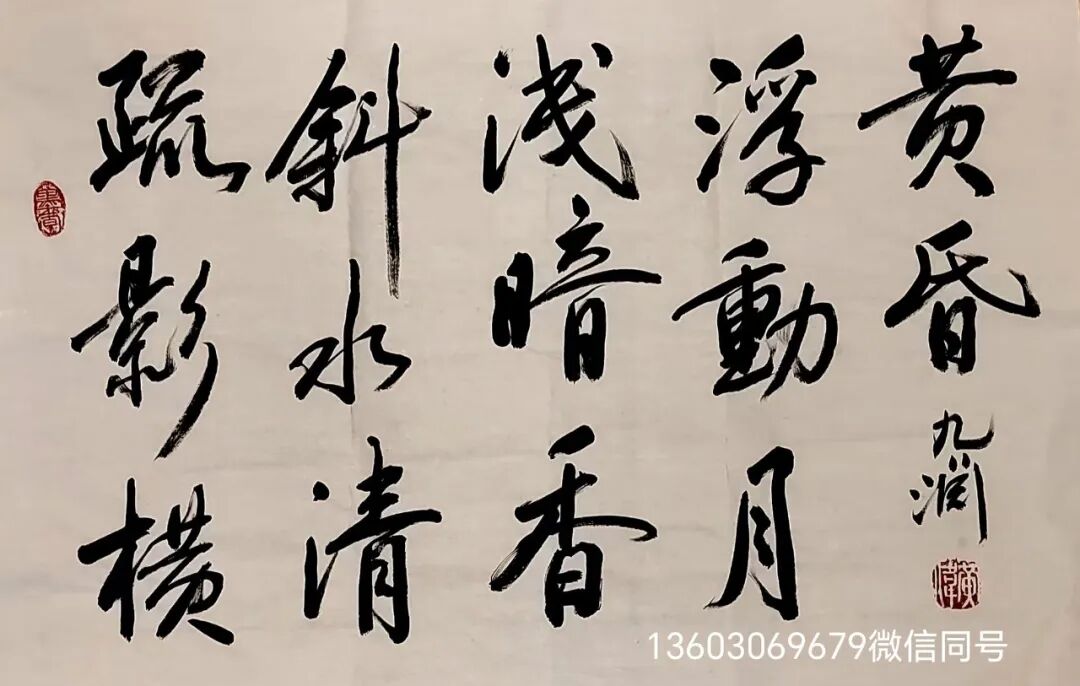 疏影横
斜水清
浅暗香
浮動月
黄昏
九润
13603069679微信同号